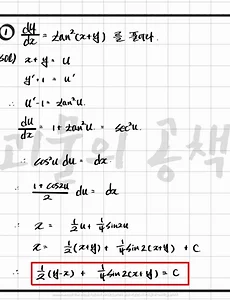 ① dy/dx = tan²(x+y) 를 풀어라.
sol) x + y = u
y' + 1 = u'
∴ u' - 1 = tan²u.
du/dx = 1 + tan²u. = sec²u.
∴ cos²u du = dx
∴ (1 + cos2u)/2 du = dx
∴ x = 1/2 u + 1/4 sin2u
x = 1/2 (x+y) + 1/4 sin2(x+y) + C
∴ 1/2 (y-x) + 1/4 sin2(x+y) = C
괴물의 공책